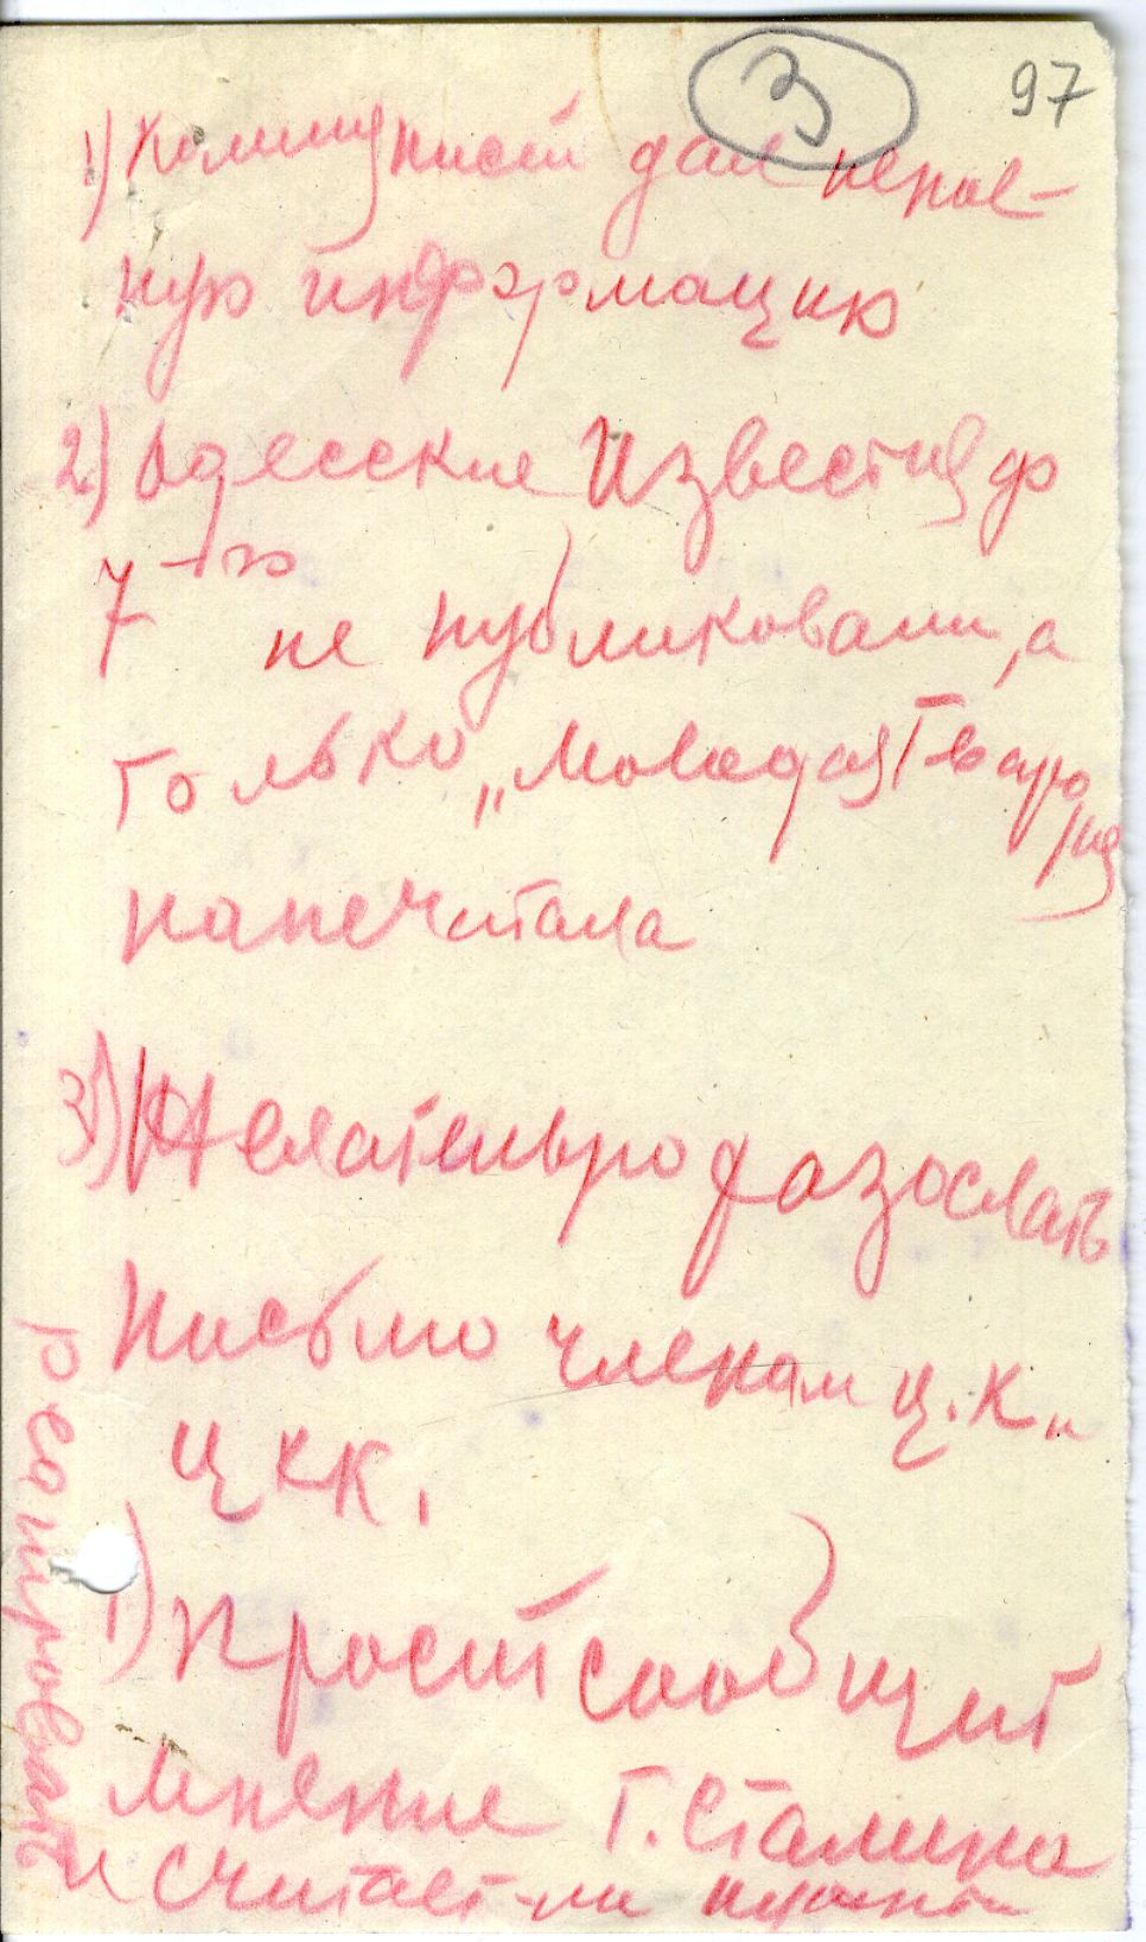 3 97
1) Коммунист дал непол-
ную информацию
2) Одесские Известия до
7-го
не публиковали, а
только „Молодая Гвард
/ия
напечатала
3) Желательно разослать
письмо членам Ц.К. и
ЦКК.
1) Просит сообщить
мнение т. Сталина
и считает-ли нужным
реагировать